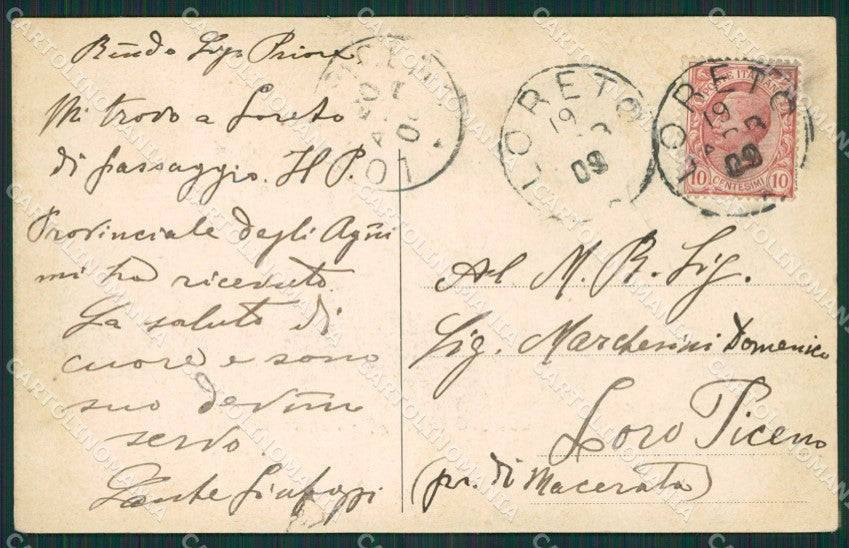 Mi trovo a Loreto
di passaggio. Il P.
Provinciale degli
mi ha ricevuto.
La saluto di
cuore e sono
suo
servo.
Al M. R. Sig.
Sig. Marchesini Domenico
Loro Piceno
(pr. di Macerata)
LORETO
19
09
LORETO
19
09
POSTE ITALIANE
10 CENTESIMI 10
LO
CARTOLINOMANIA